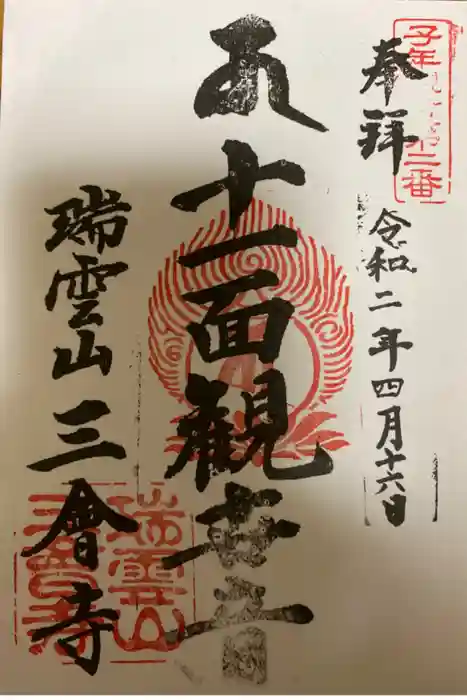 奉拝
令和二年四月十六日
十一面観世音
瑞雲山三會寺
子年
第二番
瑞雲山
三會寺